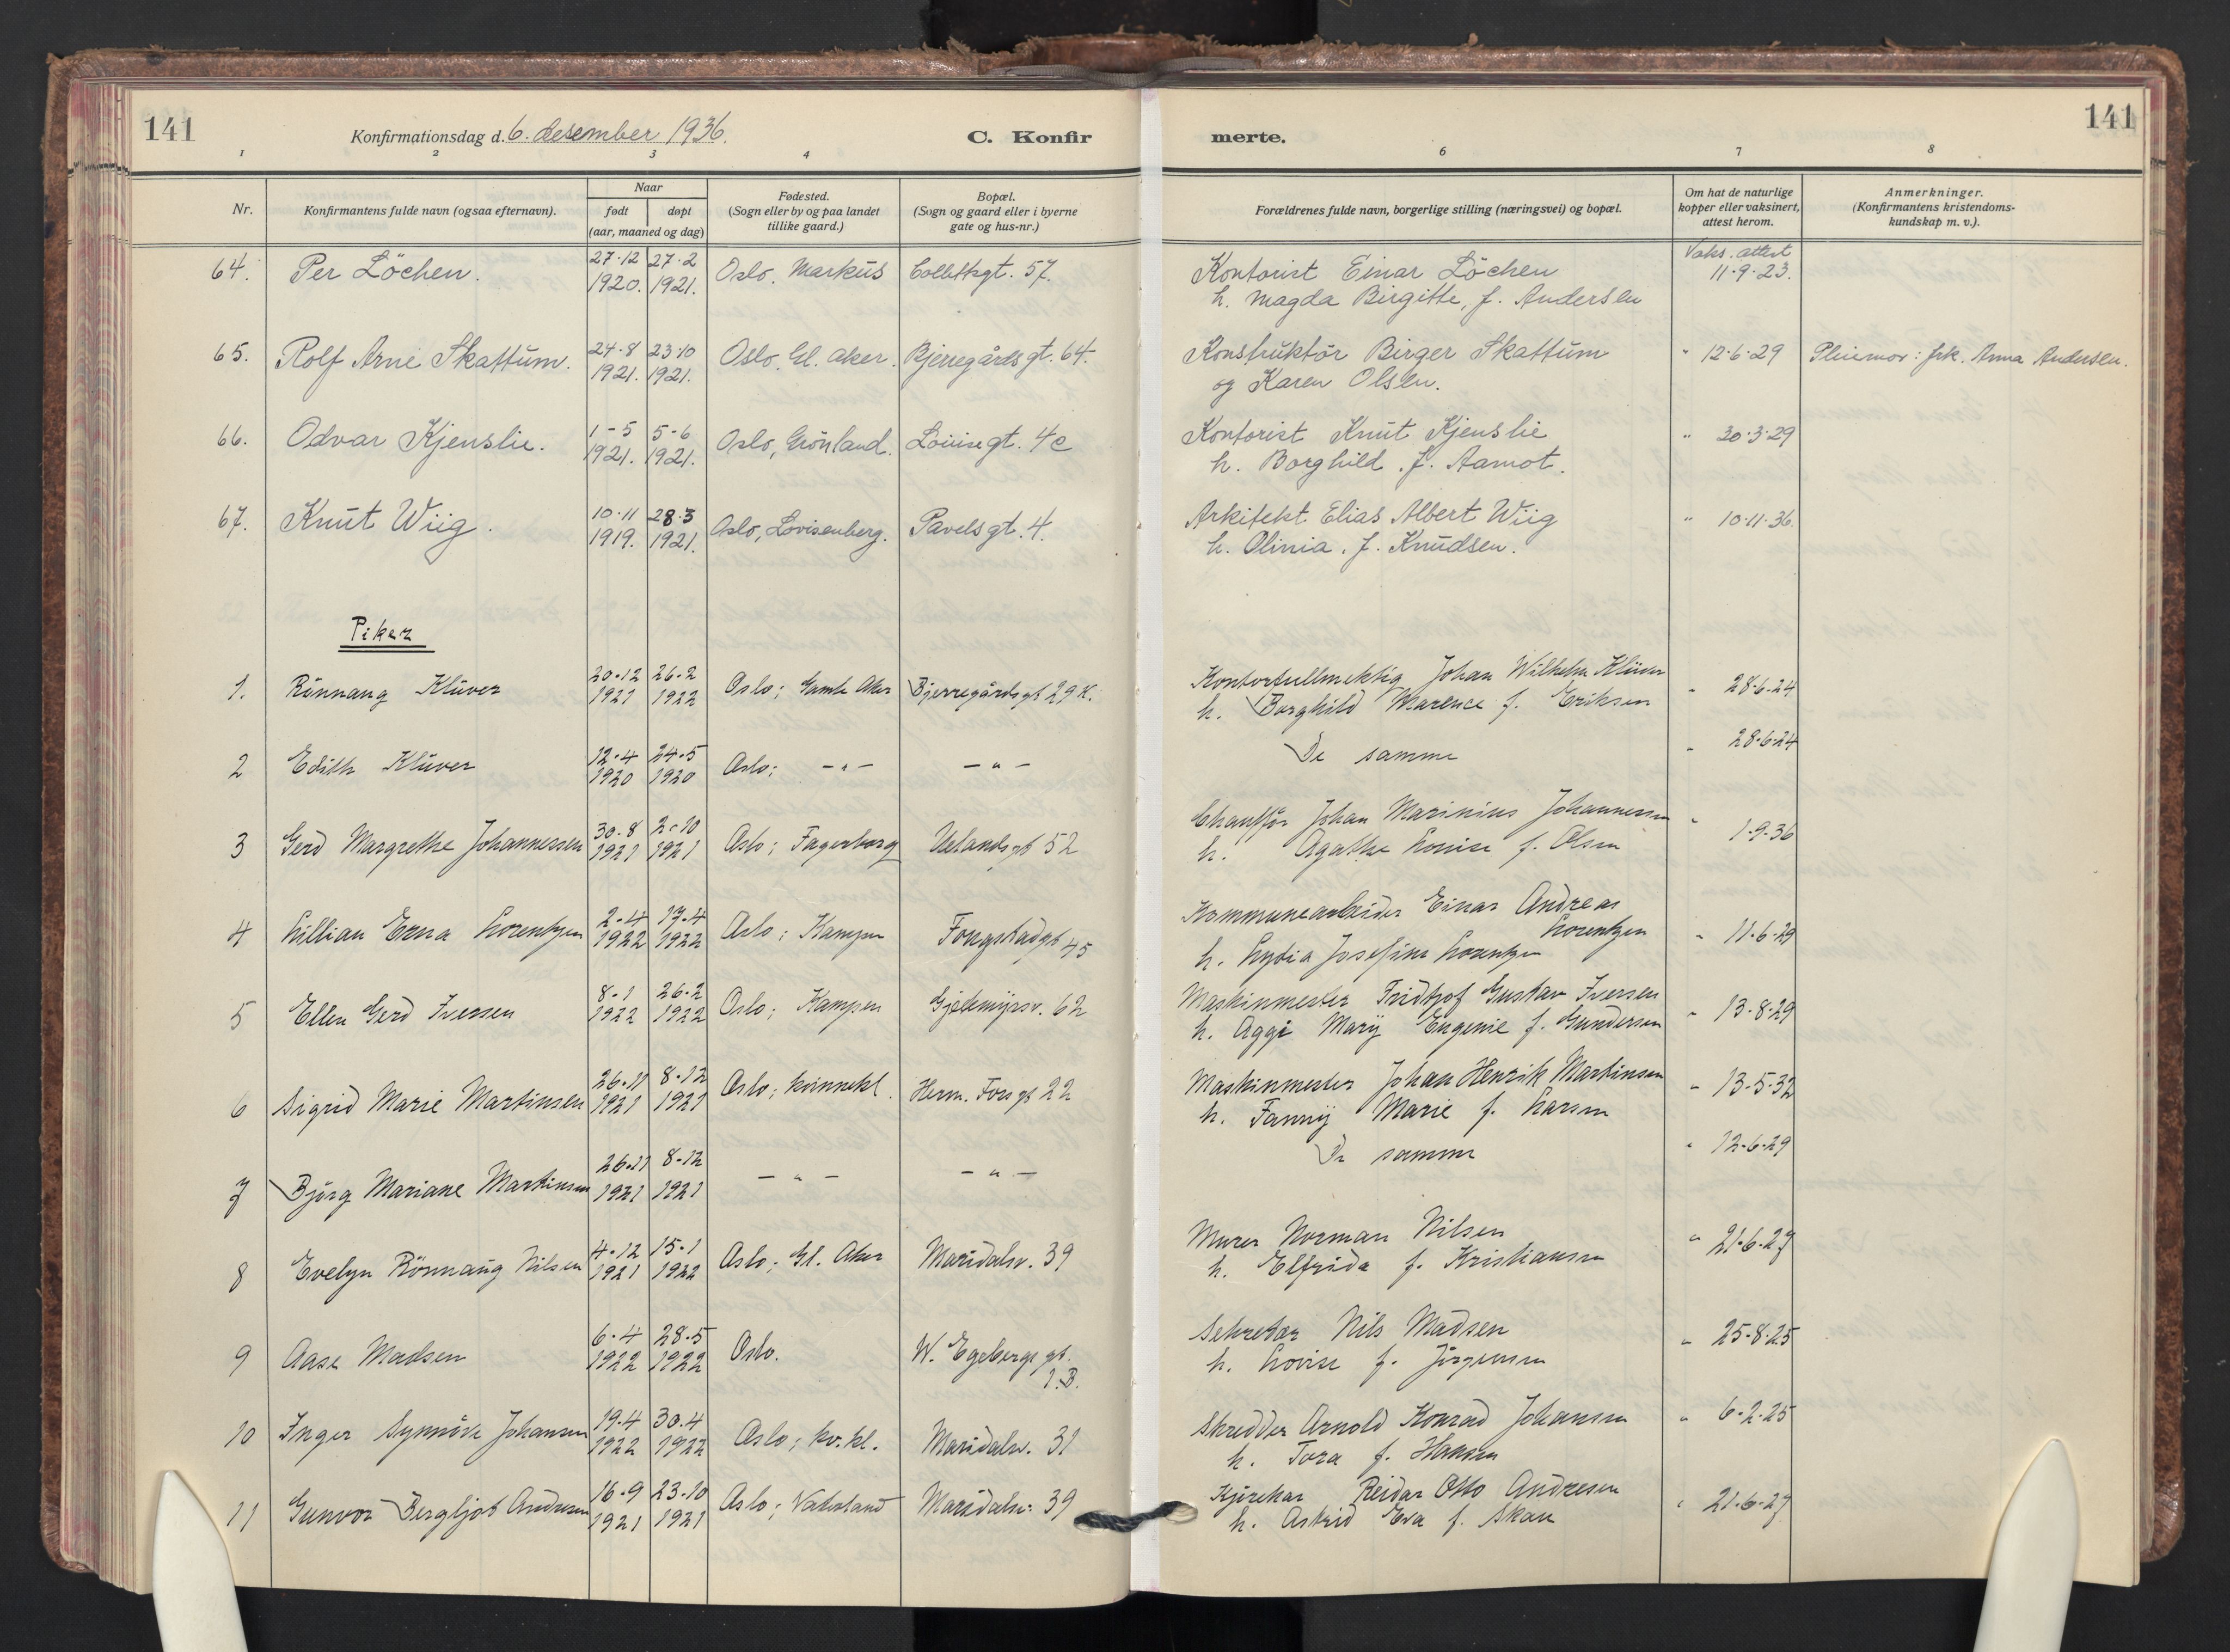 141
Konfirmationsdag d. 6. desember 1936.
C. Konfir
merte.
141
1 2 3 4 6 7 8
Nr.
Konfirmantens fulde navn (ogsaa efternavn).
Naar
født døpt
(aar, maaned og dag)
Fødested.
(Sogn eller by og paa landet
tillike gaard.)
Bopæl.
(Sogn og gaard eller i byerne
gate og hus-nr.)
Forældrenes fulde navn, borgerlige stilling (næringsvei) og bopæl.
Om hat de naturlige
kopper eller vaksinert,
attest herom.
Anmerkninger.
(Konfirmantens kristendoms-
kundskap m. v.).
64. Per Löchen. 27·12 1920. 27·2 1921. Oslo, Markus Collettsgt. 57. Kontorist Einar Löchen Vaks. attest 11·9·23.
h. Magda Birgitte, f. Andersen
65. Rolf Arne Skattum. 24·8 1921. 23·10 1921. Oslo, Gl. Aker. Bjerregårdsgt. 64. Konstruktör Birger Skattum " 12·6·29 Pleiemor: frk. Anna Andersen.
og Karen Olsen.
66. Odvar Kjenslie. 1-5 1921. 5-6 1921. Oslo, Grönland. Louisegt. 4c Kontorist Knut Kjenslie " 30·3·29
h. Borghild, f. Aamot.
67. Knut Wiig. 10·11 1919. 28·3 1921. Oslo, Lovisenberg. Pavelsgt. 4. Arkitekt Elias Albert Wiig " 10·11·36.
h. Olinia, f. Knudsen.
Piker
1. Rönnaug Klüver 20-12 1921 26-2 1922 Oslo; Gamle Aker Bjerregårdsgt 29 K. Kontorfullmektig Johan Wilhelm Klüver " 28-6-24
h. Borghild Marence f. Eriksen
2 Edith Klüver 12-4 1920 24-5 1920 Oslo; -"- -"- De samme " 28-6-24
3 Gerd Margrethe Johannessen 30-8 1921 2-10 1921 Oslo; Fagerborg Uelandsgt 52 Chauffør Johan Marinius Johannessen " 1-9-36
h. Agathe Louise f. Olsen
4 Lillian Erna Lorentzen 2-4 1922 17-4 1922 Oslo; Kampen Fougstadgt 45 Kommunearbeider Einar Andreas
Lorentzen " 11-6-29
h. Lydia Josefine Lorentzen
5 Ellen Gerd Iversen 8-1 1922 26-2 1922 Oslo; Kampen Gjetemyrsv. 62 Maskinmester Fridtjof Gustav Iversen " 13-8-29
h. Aggi Mary Eugenie f. Gundersen
6 Sigrid Marie Martinsen 26-11 1921 8-12 1921 Oslo; kvinnekl. Herm. Fossgt 22 Maskinmester Johan Henrik Martinsen " 13-5-32
h. Fanny Marie f. Larsen
7 Bjørg Mariane Martinsen 26-11 1921 8-12 1921 -"- -"- De samme " 12-6-29
8 Evelyn Rönnaug Nilsen 4-12 1921 15-1 1922 Oslo; Gl. Aker Maridalsv. 39 Murer Norman Nilsen " 21-6-27
h. Elfrida f. Kristiansen
9 Aase Madsen 6-4 1922 28-5 1922 Oslo. W. Egebergs gt. 1.B. Sekretær Nils Madsen " 25-8-25
h. Lovise f. Jörgensen
10 Inger Synnöve Johansen 19-4 1922 30-4 1922 Oslo; kv.kl. Maridalsv. 31 Skredder Arnold Konrad Johansen " 6-2-25
h. Tora f. Hansen
11 Gunvor Bergljot Andresen 16-9 1921 23-10 1921 Oslo; Vaterland Maridalsv. 39 Kjørekar Reidar Otto Andresen " 21-6-27
h. Astrid Eva f. Skau